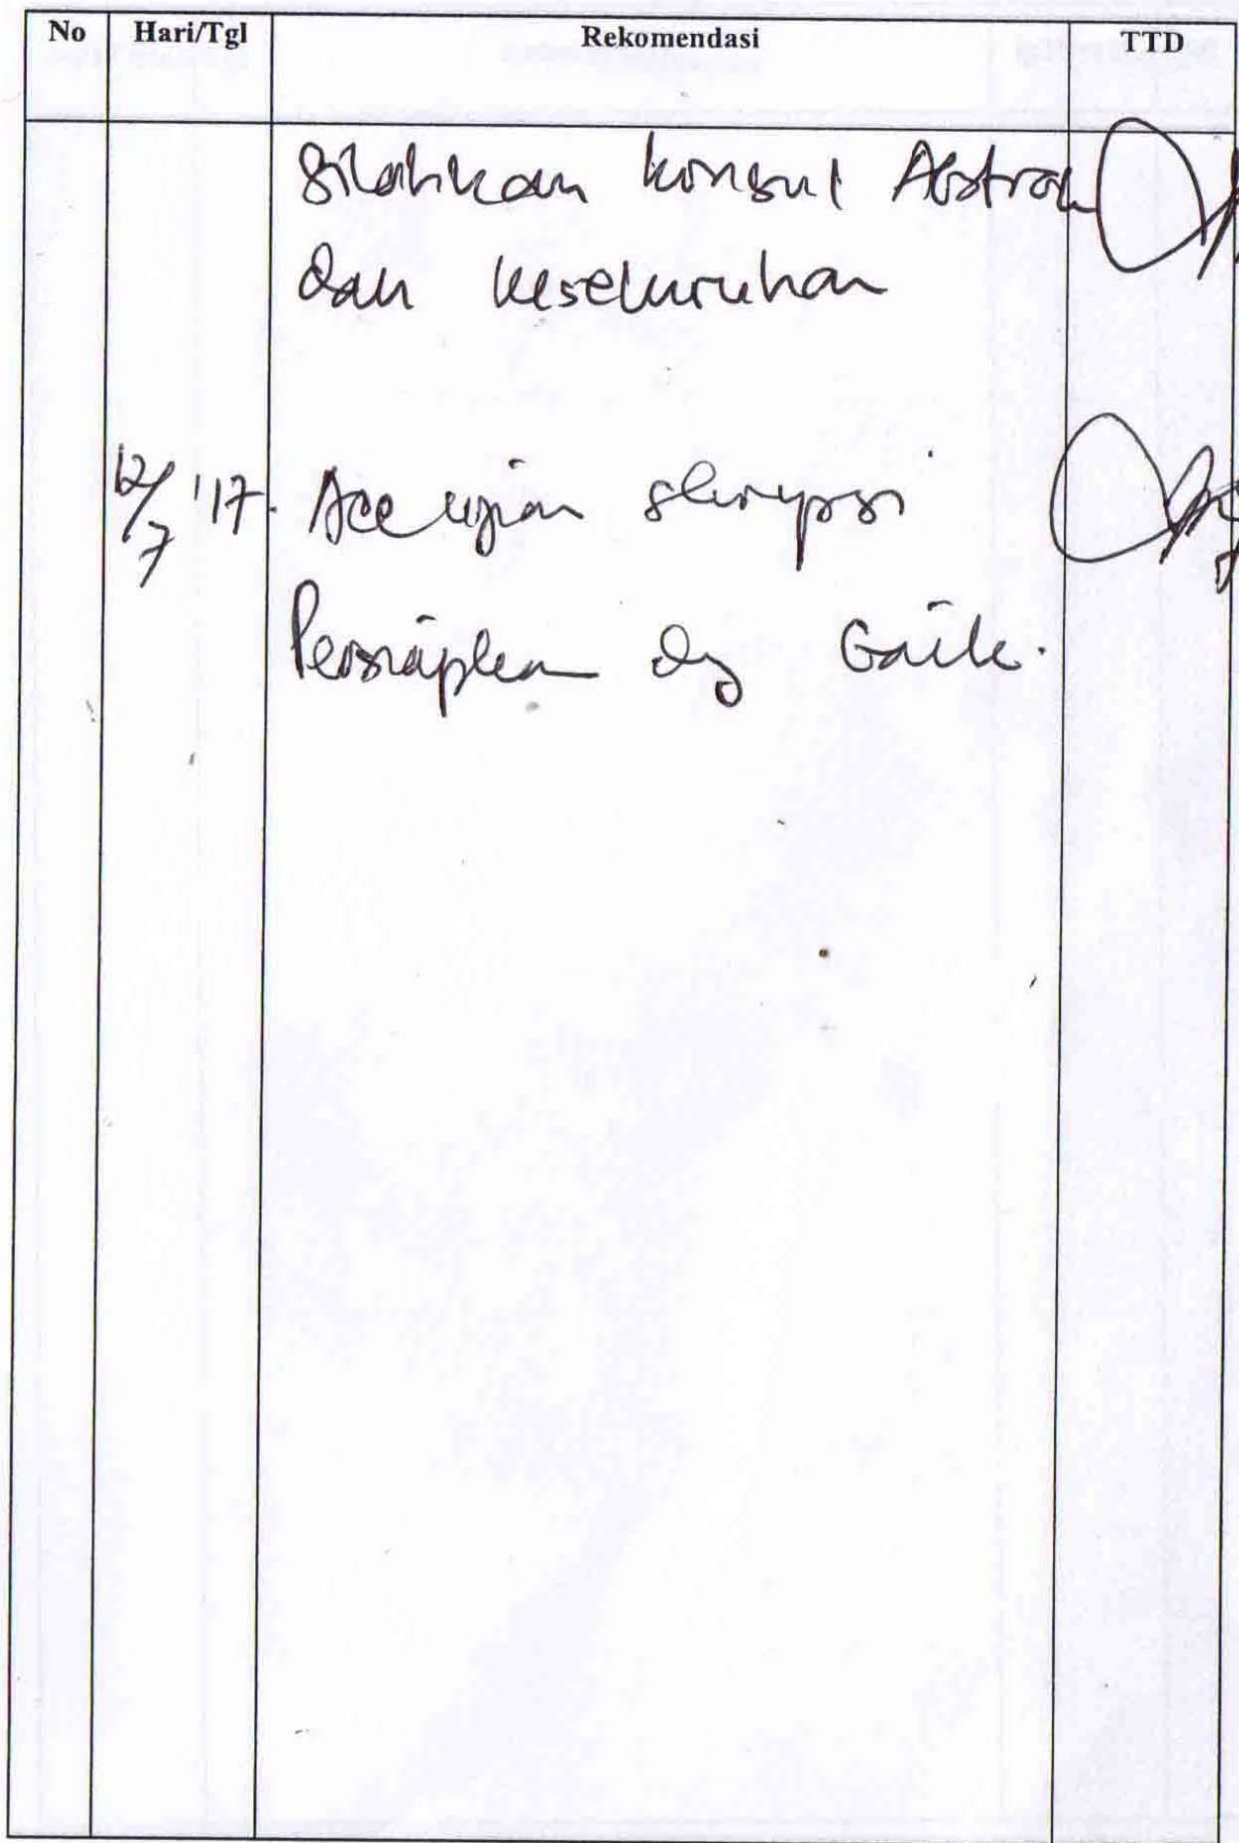 No Hari/Tgl Rekomendasi TTD
Silahkan konsul Abstrak
dan keseluruhan
12/7 '17. Acc ujian skripsi
Persiapkan dg baik.